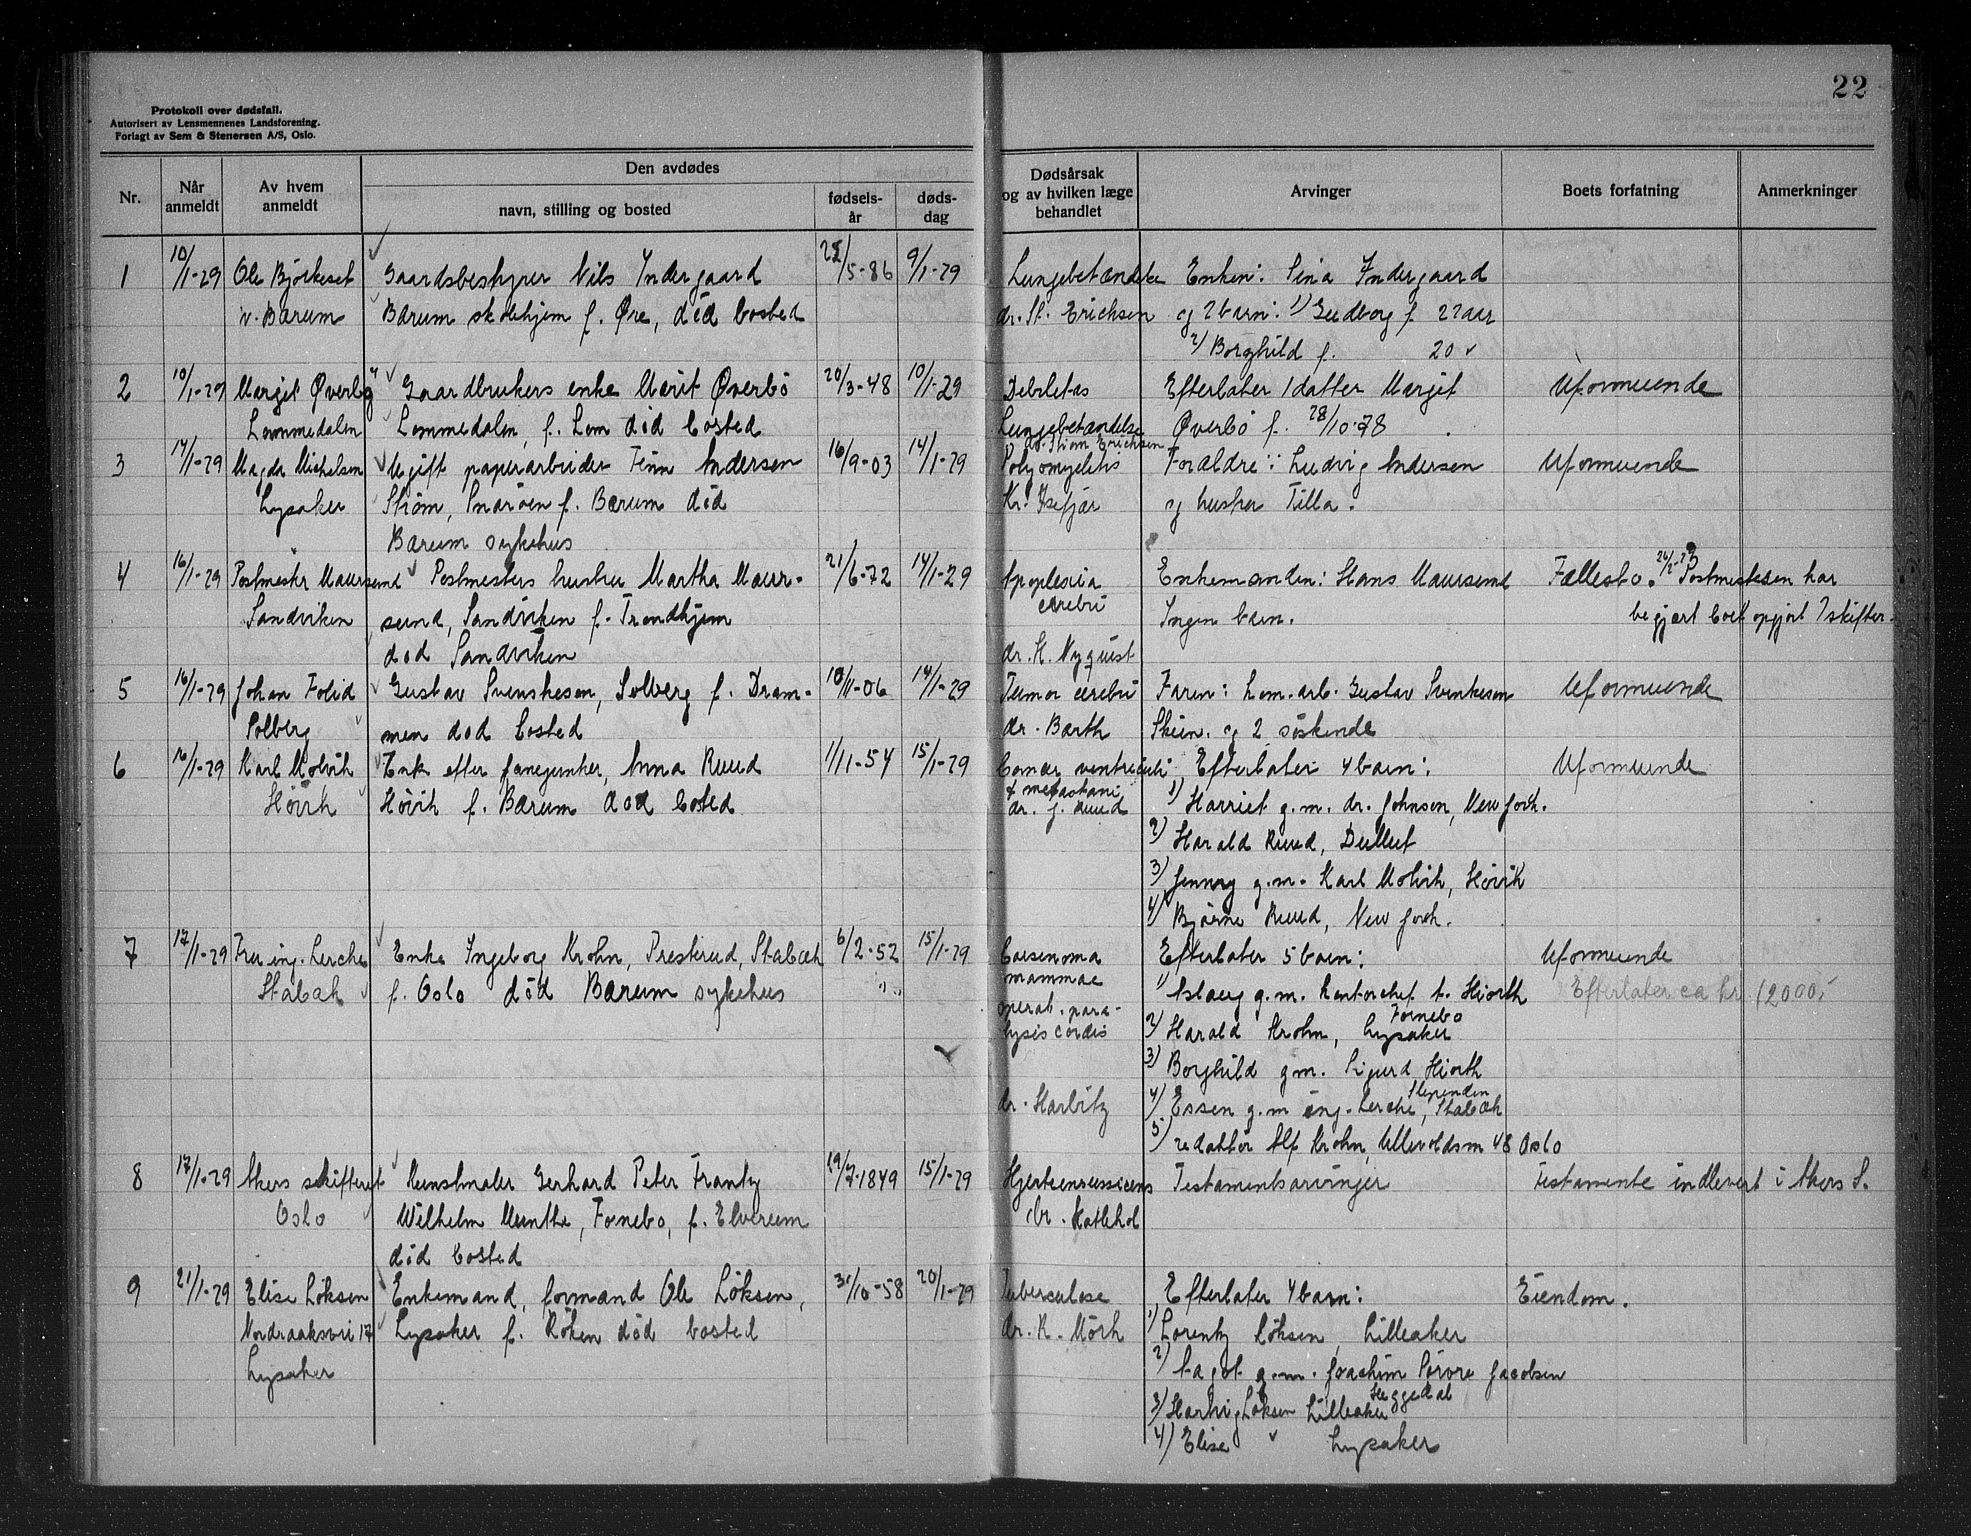 22
Protokoll over dødsfall.
Autorisert av Lensmennenes Landsforening.
Forlagt av Sem & Stenersen A/S, Oslo.
Nr. Når anmeldt Av hvem anmeldt Den avdødes navn, stilling og bosted fødselsår dødsdag Dødsårsak og av hvilken læge behandlet Arvinger Boets forfatning Anmerkninger
1 10/1-29 Ole Bjørkeset Gaardsbestyrer Nils Indergaard /5-86 9/1-29 Lungebetændelse Enken: Sina Indergaard
v. Bærum Bærum skolehjem f. Øre, död bosted dr. St. Erichsen og 2 barn: 1) Gudborg f. 22 aar
2) Borghild f. 20 "
2 10/1-29 Margit Øverby Gaardbrukers enke Marit Øverbö 20/3-48 10/1-29 Debiletas Efterlater 1 datter Margit Uformuende
Lommedalen Lommedalen, f. Lom död bosted Lungebetændelse Øverbö f. 28/10-78
dr. Stian Erichsen
3 17/1-29 Magda Michelsen Ugift papirarbeider Finn Andersen 16/9-03 14/1-29 Polyomyelitis Forældre: Ludvig Andersen Uformuende
Lysaker Strøm, Snarøen f. Bærum död Kr. Isefjær og hustru Tilla.
Bærum sykehus
4 16/1-29 Postmester Maursund Postmesters hustru Martha Maur- 21/6-72 14/1-29 Apoplexia Enkemanden: Hans Maursund Fællesbo. Postmesteren har
Sandviken sund, Sandviken f. Trondhjem cerebri Ingen barn. begjært boet opgjort i skifter.
död Sandviken dr. H. Nyquist
5 16/1-29 Johan Folid Gustav Svenkesen, Solberg f. Dram- 10/11-06 14/1-29 Tumor cerebri Faren: kom. arb. Gustav Svenkesen Uformuende
Solberg men död bosted dr. Barth Skien. og 2 söskende
6 16/1-29 Karl Molvik Enke efter fanejunker, Anna Ruud 1/11-54 15/1-29 Cancer ventriculi Efterlater 4 barn: Uformuende
Høvik Høvik f. Bærum död bosted & metastasi 1) Harriet g.m. dr. Johnson, New York.
dr. J. Ruud
2) Harald Ruud, Dullut
3) Jenny g.m. Karl Molvik, Høvik
4) Bjarne Ruud, New York.
7 17/1-29 Fru ing. Lerche Enke Ingeborg Krohn, Presterud, Stabæk 6/2-52 15/1-29 Carsenoma Efterlater 5 barn: Uformuende
Stabæk f. Oslo död Bærum sykehus mammae 1) Aslaug g.m. kontorchef t. Hiorth Efterlater ca kr. 12000,-
operat. para- Fornebo
lysis cordis 2) Harald Krohn, Lysaker
3) Borghild g.m. Sigurd Hiorth
Slependen
dr. Harbitz 4) Essen g.m ing. Lerche, Stabæk
5) redaktör Alf Krohn, Ullevoldsvn 48 Oslo
8 17/1-29 Akers skifteret Kunstmaler Gerhard Peter Frantz 19/7-1849 15/1-29 Testamentsarvinger Testamente indlevert i Akers S.
Oslo Wilhelm Munthe, Fornebo, f. Elverum dr.
död bosted
9 21/1-29 Elise Løksen Enkemand, formand Ole Løksen, 31/10-58 20/1-29 Tuberculose Efterlater 4 barn: Eiendom.
Nordraaksvei 17 Lysaker f. Røken död bosted dr. K. Mörk 1) Lorentz Løksen, Lilleaker
Lysaker 2) g.m. Joachim Jacobsen
Heggedal
3) Løksen Lilleaker
4) Elise " Lysaker